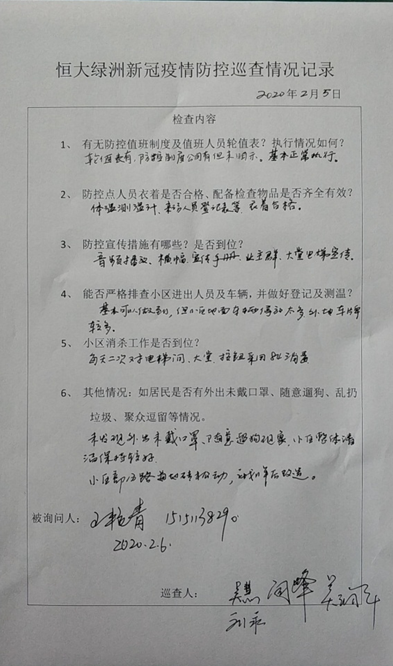 恒大绿洲新冠疫情防控巡查情况记录
2020年2月5日
检查内容
1、 有无防控值班制度及值班人员轮值表？执行情况如何？
轮值表有，防控制度公司有但未明示。基本正常执行。
2、 防控点人员衣着是否合格、配备检查物品是否齐全有效？
体温测温计、来访人员登记表等，衣着合格。
3、 防控宣传措施有哪些？是否到位？
音频播放、横幅、宣传手册、业主群、大堂电梯宣传。
4、 能否严格排查小区进出人员及车辆，并做好登记及测温？
基本可以做到，但小区地面
外地车牌
较多。
5、 小区消杀工作是否到位？
每天二次对电梯间、大堂、按钮采用 消毒
6、 其他情况：如居民是否有外出未戴口罩、随意遛狗、乱扔
垃圾、聚众逗留等情况。
未发现外出未戴口罩、随意遛狗现象，小区整体清
洁保持较好
小区部分路面地砖松动，计划年后改造。
被询问人： 王艳青
2020.2.6.
巡查人：